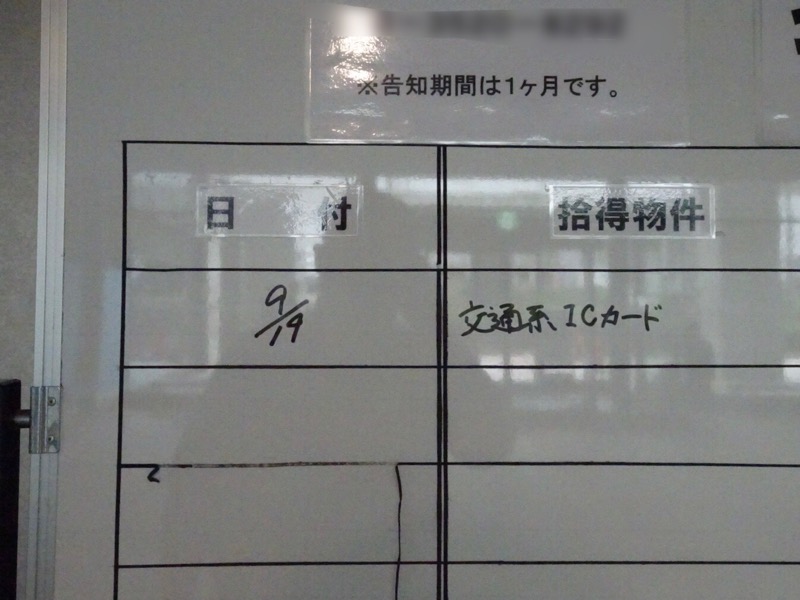 ※告知期間は1ヶ月です。
日　付
拾得物件
9/19
交通系ICカード